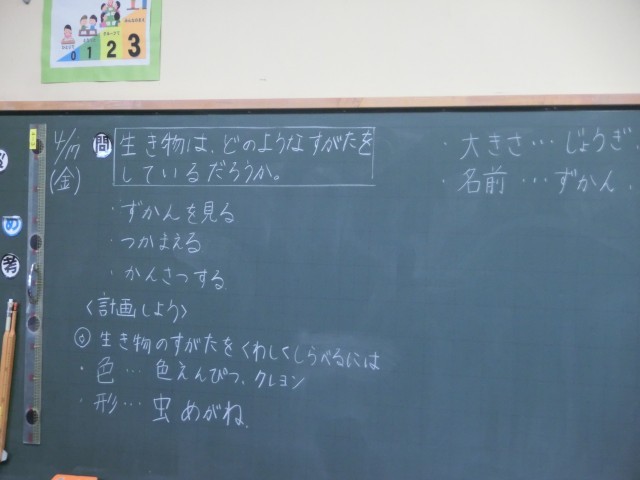 4/17
(金)
問
生き物は、どのようなすがたを
しているだろうか。
・ずかんを見る
・つかまえる
・かんさつする
〈計画しよう〉
◎ 生き物のすがたをくわしくしらべるには
・色… 色えんぴつ、クレヨン
・形… 虫めがね
・大きさ… じょうぎ、
・名前 … ずかん、
0 1 2 3
め
考